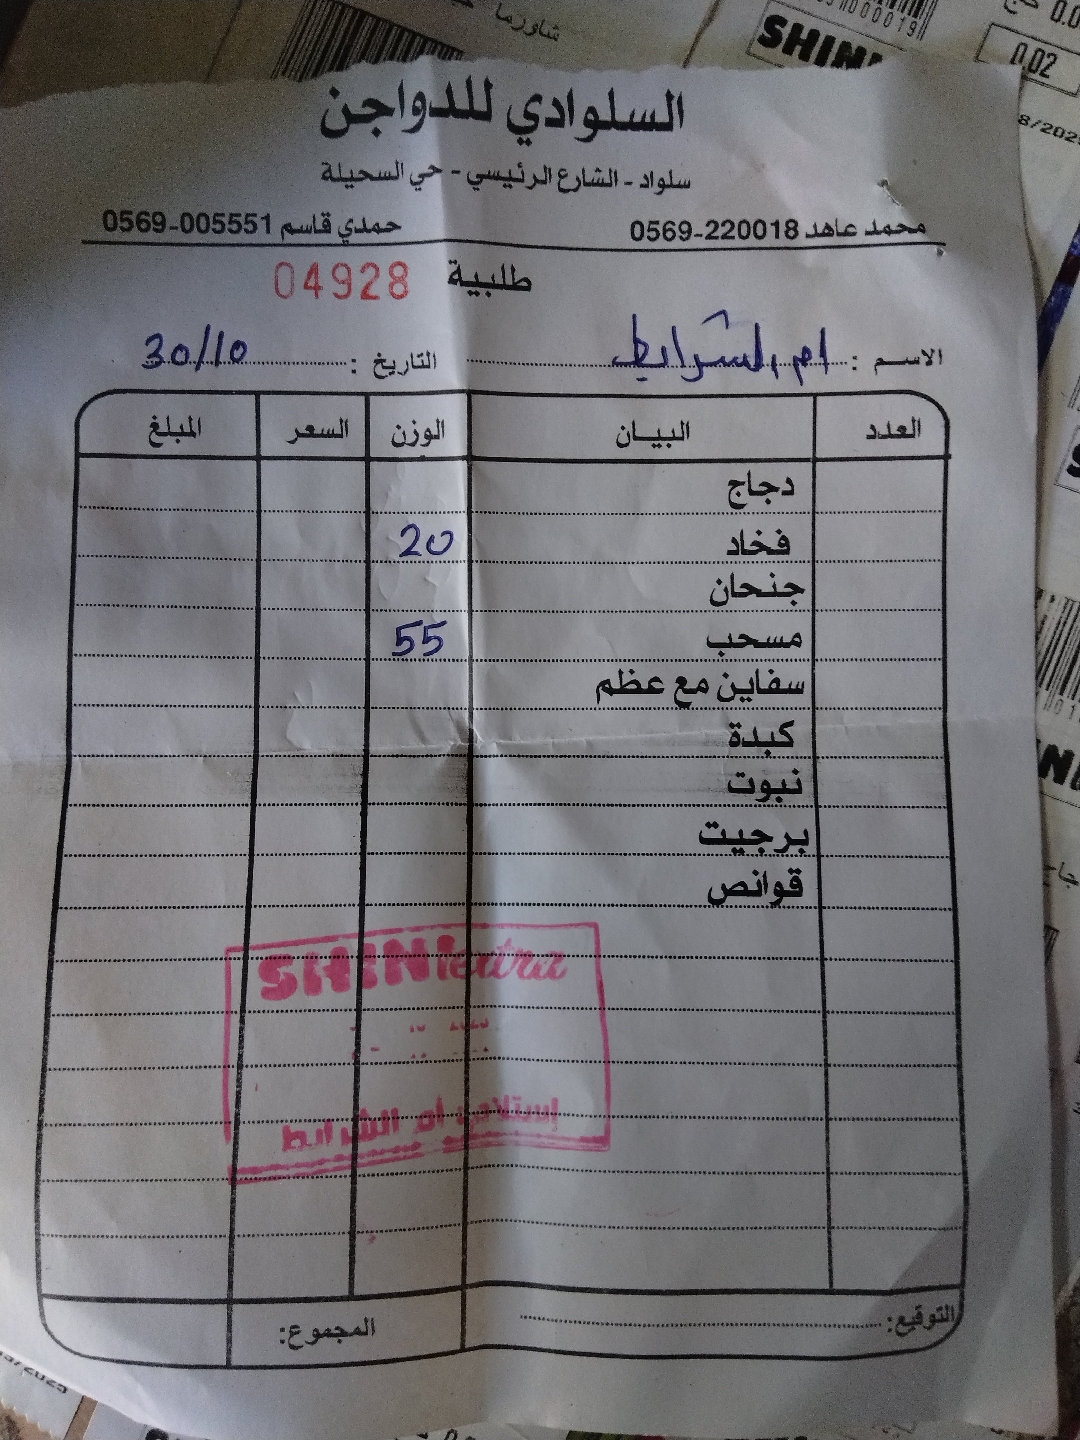 شاورما
SHINI
0.02
السلوادي للدواجن
سلواد - الشارع الرئيسي - حي السحيلة
محمد عاهد 220018-0569 حمدي قاسم 005551-0569
طلبية 04928
الاسم : ام الشرايط التاريخ : 30/10
العدد البيـان الوزن السعر المبلغ
دجاج
فخاد 20
جنحان
مسحب 55
سفاين مع عظم
كبدة
نبوت
برجيت
قوانص
SHINI extra
إستلام أم الشرايط
التوقيع: المجموع: